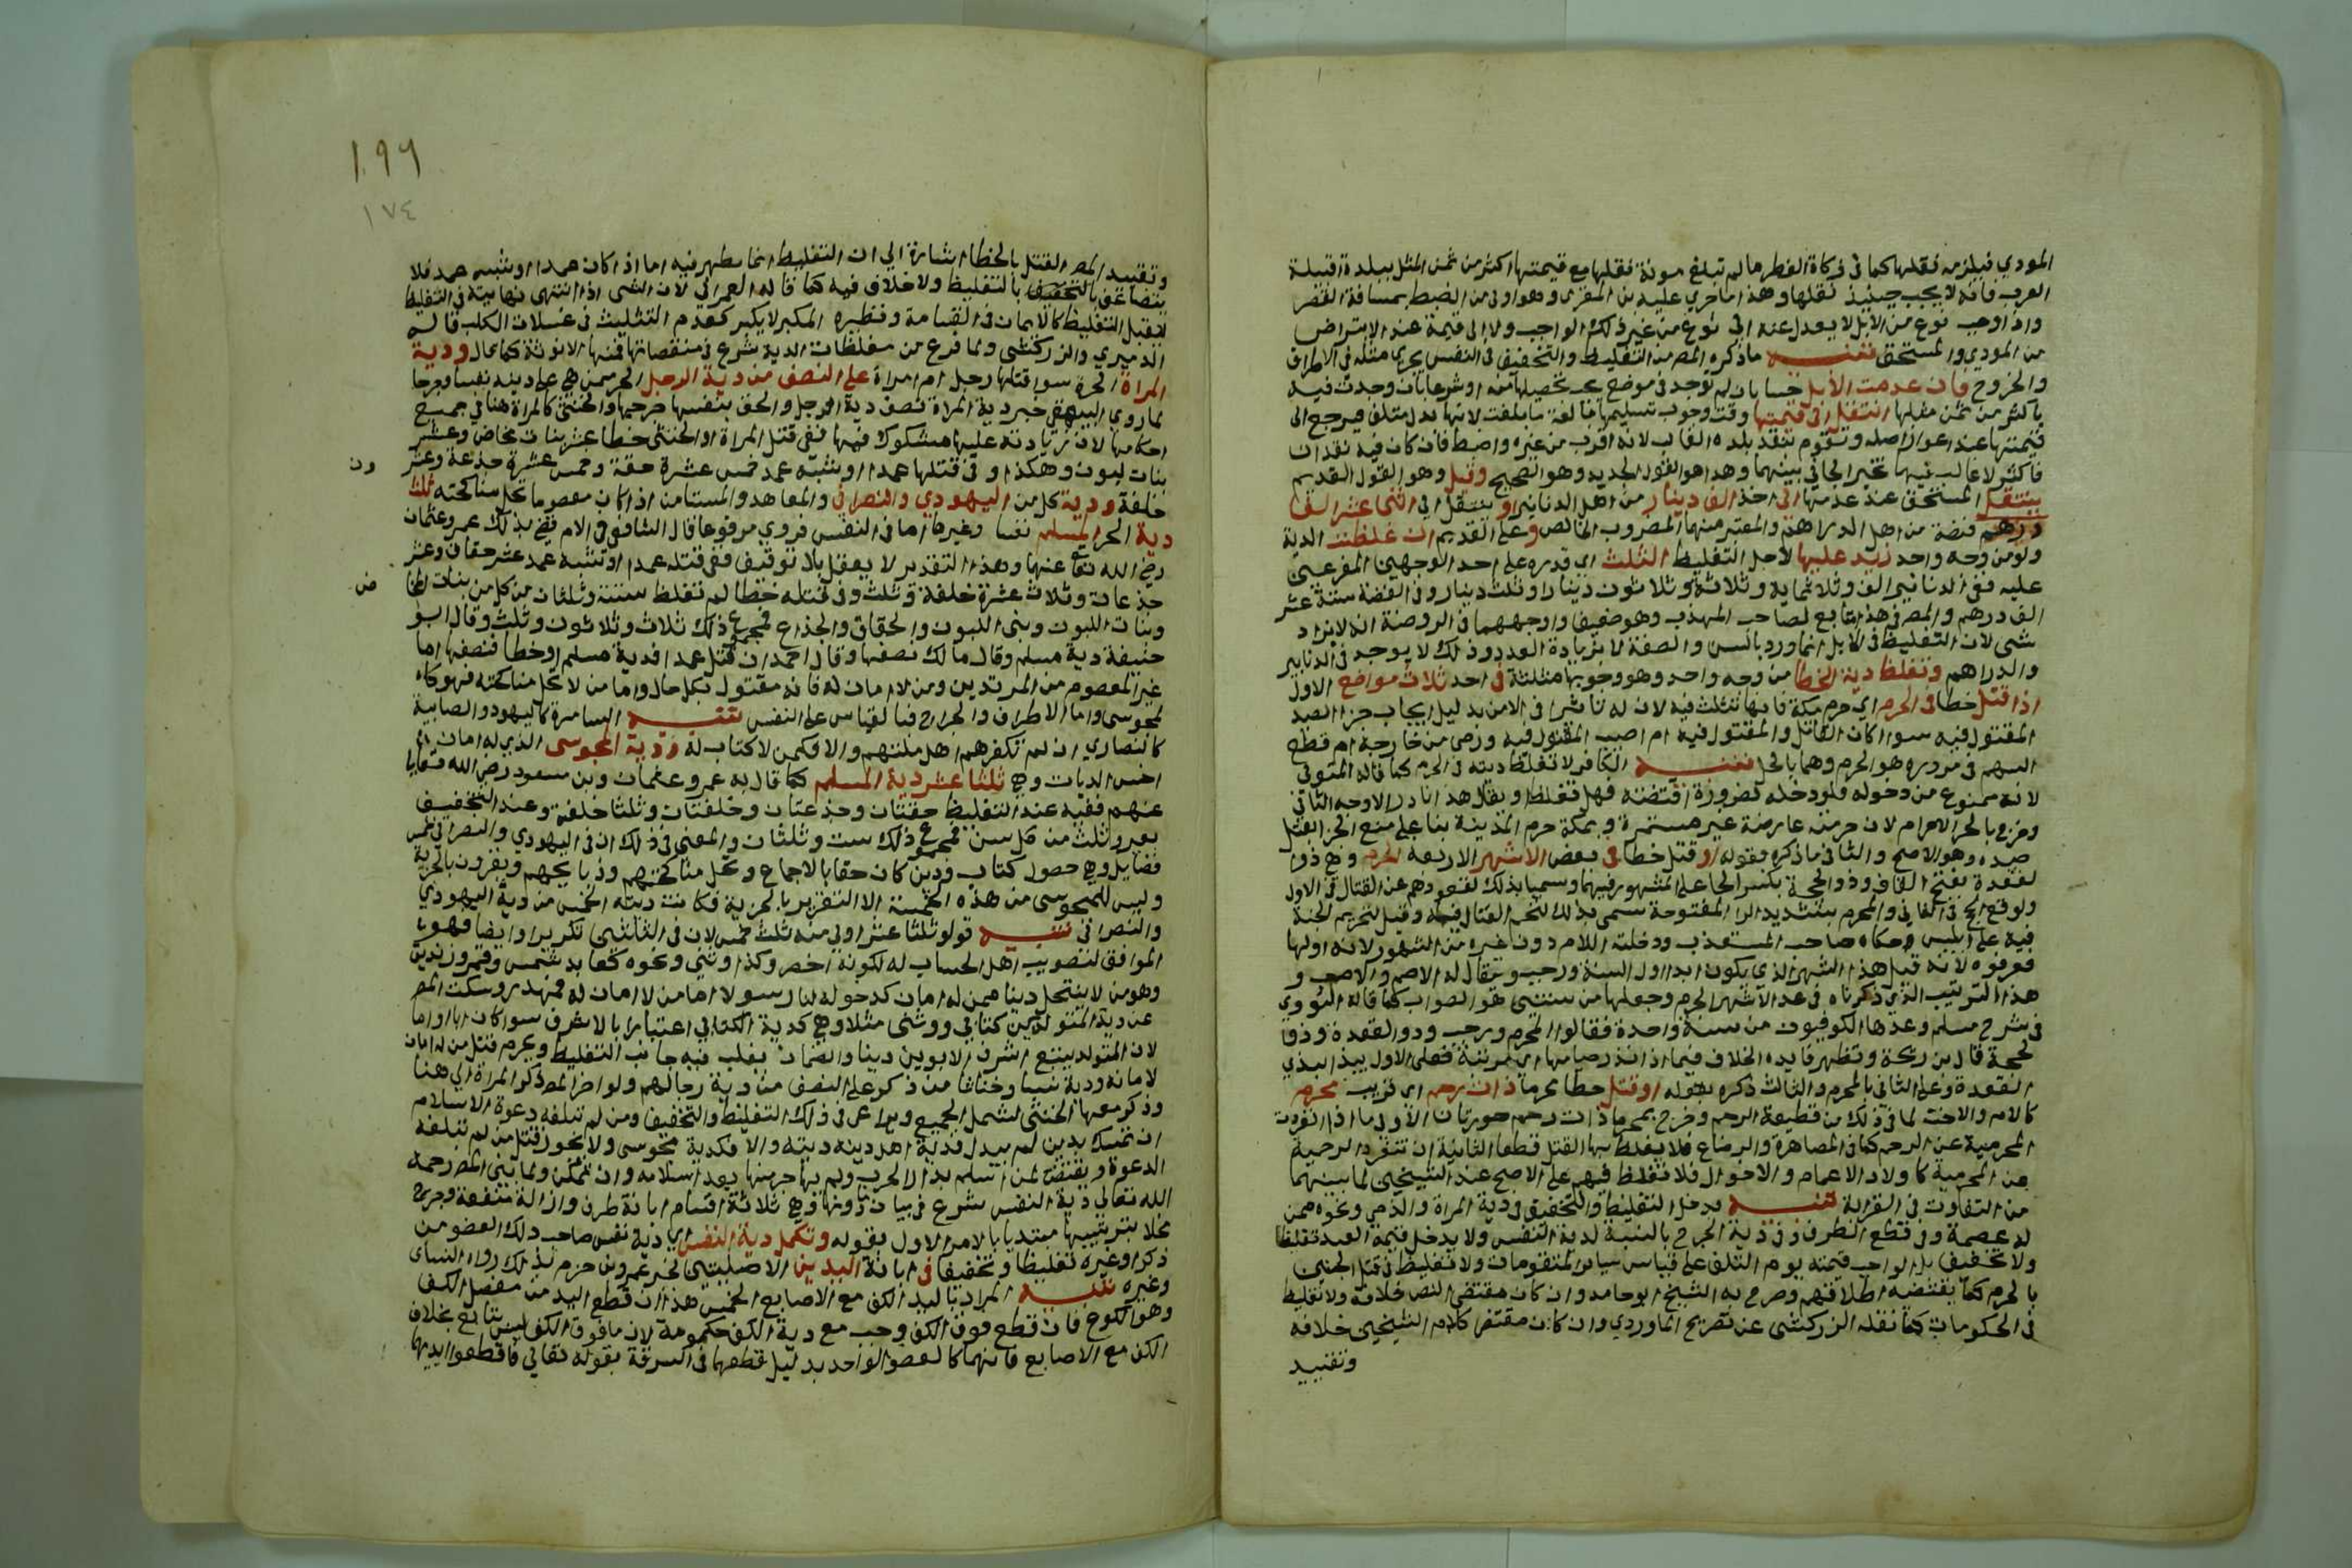 المودي فيلزمه نقلها كما في زكاة الفطر ما لم تبلغ مونة نقلها مع قيمتها اكثر من ثمن المثل ببلدة او قبيلة
العرب فانه لا يجب حينيذ نقلها وهذا ما جري عليه بن المقري وهو اولى من الضبط بمسافة القصر
واذا وجب نوع من الابل لا يعدل عنه الى نوع من غير ذلك الواجب ولا الى قيمة عنه الا بتراض
من المودي والمستحق تنبيه ما ذكره المص من التغليظ والتخفيف في النفس يجري مثله في الاطراف
والجروح فان عدمت الابل حسا بان لم توجد في موضع يجب تحصيلها منه او شرعا بان وجدت فيه
باكثر من ثمن مثلها انتقل الى قيمتها وقت وجوب تسليمها بالغة ما بلغت لانها بدل متلف فيرجع الى
قيمتها عند اعواز اصله وتقوم بنقد بلده الغالب لانه اقرب من غيره واضبط فان كان فيه نقدان
فاكثر لا غالب فيها تخير الجاني بينهما وهذا هو القول الجديد وهو الصحيح وقيل وهو القول القديم
ينتقل المستحق عند عدمها الى اخذ الف دينار من اهل الدنانير او ينتقل الى اثنى عشر الف
درهم فضة من اهل الدراهم والمعتبر منهما المضروب الخالص وعلى القديم ان غلظت الدية
ولو من وجه واحد زيد عليها لاجل التغليظ الثلث اي قدره على احد الوجهين المفرعين
عليه ففي الدنانير الف وثلاثماية وثلاثة وثلاثون دينارا وثلث دينار وفي الفضة ستة عشر
الف درهم والمص في هذا تابع لصاحب المهذب وهو ضعيف واوجههما في الروضة انه لا يزاد
شي لان التغليظ في الابل انما ورد بالسن والصفة لا بزيادة العدد وذلك لا يوجد في الدنانير
والدراهم وتغلظ دية الخطا من وجه واحد وهو وجوبها مثلثة في احد ثلاث مواضع الاول
اذا قتل خطا في الحرم اي حرم مكة فانها تثلث فيه لان له تاثيرا في الامن بدليل ايجاب جزا الصيد
المقتول فيه سوا اكان القاتل والمقتول فيه ام اصيب المقتول فيه ورمى من خارجه ام قطع
السهم في مروره هو الحرم وهما بالحل تنبيه الكافر لا تغلظ ديته في الحرم كما قاله المتولي
لانه ممنوع من دخوله فلو دخله لضرورة اقتضته فهل تغلظ او يقال هذا نادر الاوجه الثاني
وخرج بالحرم الاحرام لان حرمته عارضة غير مستمرة وبمكة حرم المدينة بنا على منع الجزا بقتل
صيده وهو الاصح والثاني ما ذكره بقوله او قتل خطا في بعض الاشهر الاربعة الحرم وهي ذو ا
لقعدة بفتح القاف وذو الحجة بكسر الحا على المشهور فيهما وسميا بذلك لقعودهم عن القتال في الاول
ولوقوع الحج في الثاني والمحرم بتشديد الرا المفتوحة سمى بذلك لتحريم القتال فيه وقيل لتحريم الجنة
فيه على ابليس حكاه صاحب المستعذب ودخلته اللام دون غيره من الشهور لانه اولها
فعرفوه لانه قيل هذا الشهر الذي يكون ابدا اول السنة ورجب ويقال له الاصم والاصب و
هذا الترتيب الذي ذكرناه في عد الاشهر الحرم وجعلها من سنتين هو الصواب كما قاله النووي
في شرح مسلم وعدها الكوفيون من سنة واحدة فقالوا المحرم ورجب وذو القعدة وذو ا
لحجة قال بن دحية وتظهر فايدة الخلاف فيما اذا نذر صيامها اي مرتبة فعلى الاول يبدا بذي
القعدة وعلى الثاني بالمحرم والثالث ذكره بقوله او قتل خطا محرما ذا رحم اي قريب محرم
كالام والاخت لما في ذلك من قطيعة الرحم وخرج بمحرما ذات رحم صورتان الاولى ما اذا انفردت
المحرمية عن الرحم كما في المصاهرة والرضاع فلا يغلظ بها القتل قطعا الثانية ان تنفرد الرحمية
عن المحرمية كاولاد الاعمام والاخوال فلا تغلظ فيهم على الاصح عند الشيخين لما بينهما
من التفاوت في القرابة تنبيه يدخل التغليظ والتخفيف في دية المراة والذمي ونحوه ممن
له عصمة وفي قطع الطرف وفي دية الجرح بالنسبة لدية النفس ولا يدخل قيمة العبد تغليظ
ولا تخفيف بل الواجب قيمته يوم التلف على قياس سياير المتقومات ولا تغليظ في قتل الجنين
بالحرم كما يقتضيه اطلاقهم وصرح به الشيخ ابو حامد وان كان مقتضى النص خلافه ولا تغليظ
في الحكومات كما نقله الزركشي عن تصريح الماوردي وان كان مقتضى كلام الشيخين خلافه
وتقييد
١٩٦
١٧٤
وتقييد المص القتل بالخطا اشارة الي ان التغليظ انما يظهر فيه اما اذا كان عمدا او شبه عمد فلا
يتضاعف التخفيف بالتغليظ ولا خلاف فيه كما قاله العمراني لان الشى اذا انتهى نهايته في التغليظ
لا يقبل التغليظ كالايمان في القسامة ونظيره المكبر لا يكبر كعدم التثليث في غسلات الكلب قاله
الدميري والزركشي ولما فرغ من مغلظات الدية شرع في منقصاتها فمنها الانوثة كما قال ودية
المراة الحرة سوا قتلها رجل ام امراة على النصف من دية الرجل الحر ممن هي على دينه نفسا وجرحا
لما روي البيهقي خبر دية المراة نصف دية الرجل والحق بنفسها جرحها والخنثى كالمراة هنا في جميع
احكامها لان زيادته عليها مشكوك فيها ففي قتل المراة او الخنثى خطا عشر بنات مخاض وعشر
بنات لبون وهكذا وفي قتلها عمدا او شبه عمد خمس عشرة حقة وخمس عشرة جذعة وعشر ون
خلفة ودية كل من اليهودي والنصراني والمعاهد والمستامن اذا كان معصوما تحل مناكحته ثلث
دية الحر المسلم نفسا وغيرها اما في النفس فروي مرفوعا قال الشافعي في الام قضى بذلك عمر وعثمان
رضي الله تعالى عنهما وهذا التقدير لا يعقل بلا توقيف ففي قتله عمدا او شبه عمد عشر حقاق وعشر
جذعات وثلاث عشرة خلفة وثلث وفي قتله خطا لم تغلظ ستة وثلثان من كل من بنات المخا ض
وبنات اللبون وبني اللبون والحقاق والجذاع فمجموع ذلك ثلاث وثلاثون وثلث وقال ابو
حنيفة دية مسلم وقال مالك نصفها وقال احمد ان قتل عمدا فدية مسلم او خطا فنصفها اما
غير المعصوم من المرتدين ومن لا امان له فانه مقتول بكل حال واما من لا تحل مناكحته فهو كا
لمجوسي واما الاطراف والجراح فبالقياس على النفس تنبيه السامرة كاليهود والصابية
كالنصاري ان لم تكفرهم اهل ملتهم والا فكمن لا كتاب له ودية المجوسي الذي له امان
اخس الديات وهي ثلثا عشر دية المسلم كما قال به عمر وعثمان وبن مسعود رضي الله تعالى
عنهم ففيه عند التغليظ حقتان وجذعتان وخلفتان وثلثا خلفة وعند التخفيف
بعير وثلث من كل سن فمجموع ذلك ست وثلثان والمعنى في ذلك ان في اليهودي والنصراني خمس
فضايل وهي حصول كتاب ودين كان حقا بالاجماع وتحل مناكحتهم وذبايحهم ويقرون بالجزية
وليس للمجوسي من هذه الخمسة الا التقرير بالجزية فكانت ديته الخمس من دية اليهودي
والنصراني تنبيه قوله ثلثا عشر اولى منه ثلث خمس لان في الثلثين تكريرا وايضا فهو
الموافق لتصويب اهل الحساب له لكونه اخصر وكذا وثني ونحوه كعابد شمس وقمر وزنديق
وهو من لا ينتحل دينا ممن له امان كدخوله لنا رسولا اما من لا امان له فمهدر وسكت المص
عن دية المتولد بين كتابي ووثني مثلا وهي كدية الكتابي اعتبارا بالاشرف سوا كان ابا او اما
لان المتولد يتبع اشرف الابوين دينا والضمان يغلب فيه جانب التغليظ ويحرم قتل من له امان
لامانه ودية نسا وخناثا من ذكر على النصف من دية رجالهم ولو اخر المص ذكر المراة الي هنا
وذكر معها الخنثى لشمل الجميع ويراعى في ذلك التغليظ والتخفيف ومن لم تبلغه دعوة الاسلام
ان تمسك بدين لم يبدل فدية اهل دينه ديته والا فكدية مجوسي ولا يجوز قتل من لم تبلغه
الدعوة ويقتص لمن اسلم بدار الحرب ولم يهاجر منها بعد اسلامه وان تمكن ولما بين المص رحمه
الله تعالى دية النفس شرع في بيان ما دونها وهي ثلاثة اقسام ابانة طرف وازالة منفعة وجرح
مخلا بترتيبها مبتديا بالامر الاول بقوله وتكمل دية النفس اي دية نفس صاحب ذلك العضو من
ذكر او غيره تغليظا وتخفيفا في ابانة اليدين الاصليتين لخبر عمرو بن حزم بذلك رواه النساي
وغيره تنبيه المراد باليد الكف مع الاصابع الخمس هذا ان قطع اليد من مفصل الكف
وهو الكوع فان قطع فوق الكف وجب مع دية الكف حكومة لان ما فوق الكف ليس بتابع بخلاف
الكف مع الاصابع فانهما كالعضو الواحد بدليل قطعهما في السرقة بقوله تعالى فاقطعوا ايديهما